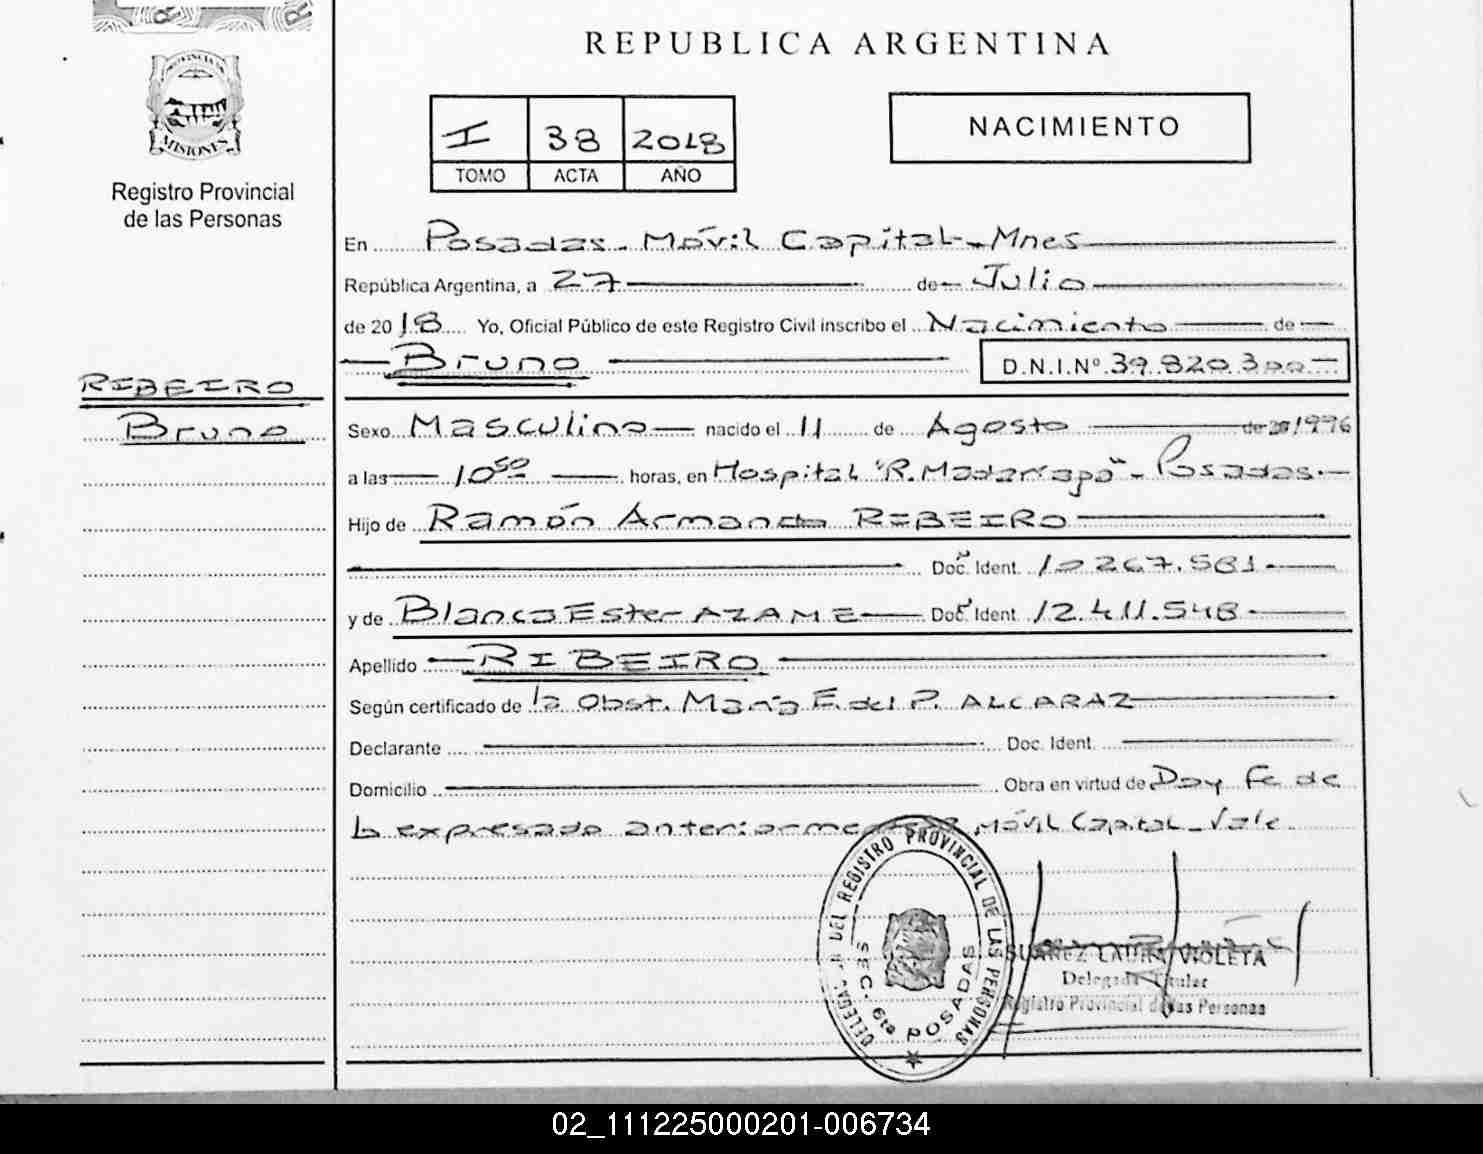 REPUBLICA ARGENTINA
MISIONES
Registro Provincial
de las Personas
I 38 2018
TOMO ACTA AÑO
NACIMIENTO
En Posadas - Móvil Capital - Mnes
República Argentina, a 27 de Julio
de 2018 Yo, Oficial Público de este Registro Civil inscribo el Nacimiento de
Bruno D.N.I.Nº 39.820.300
RIBEIRO
Bruno
Sexo Masculino nacido el 11 de Agosto de 1996
a las 10⁵⁰ horas, en Hospital "R. Madariaga" - Posadas.
Hijo de Ramón Armando RIBEIRO
Doc. Ident. 10.267.581
y de Blanca Ester AZAME Doc. Ident. 12.411.548
Apellido RIBEIRO
Según certificado de la Obst. María E. del P. ALCARAZ
Declarante Doc. Ident.
Domicilio Obra en virtud de Doy Fe de
lo expresado anteriormente Móvil Capital - Vale
DELEGACIA DEL REGISTRO PROVINCIAL DE LAS PERSONAS
SEC. 6ta POSADAS
SUAREZ LAURA VIOLETA
Delegada Titular
Registro Provincial de las Personas
02_111225000201-006734